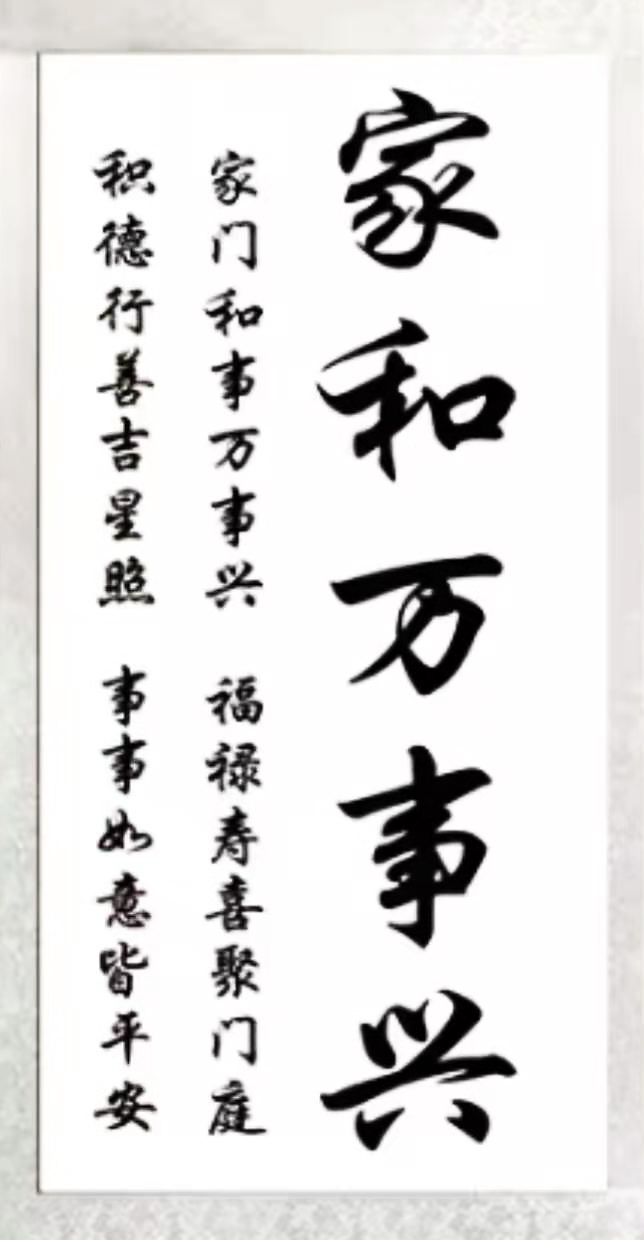 家和万事兴
家门和事万事兴 福禄寿喜聚门庭
积德行善吉星照 事事如意皆平安